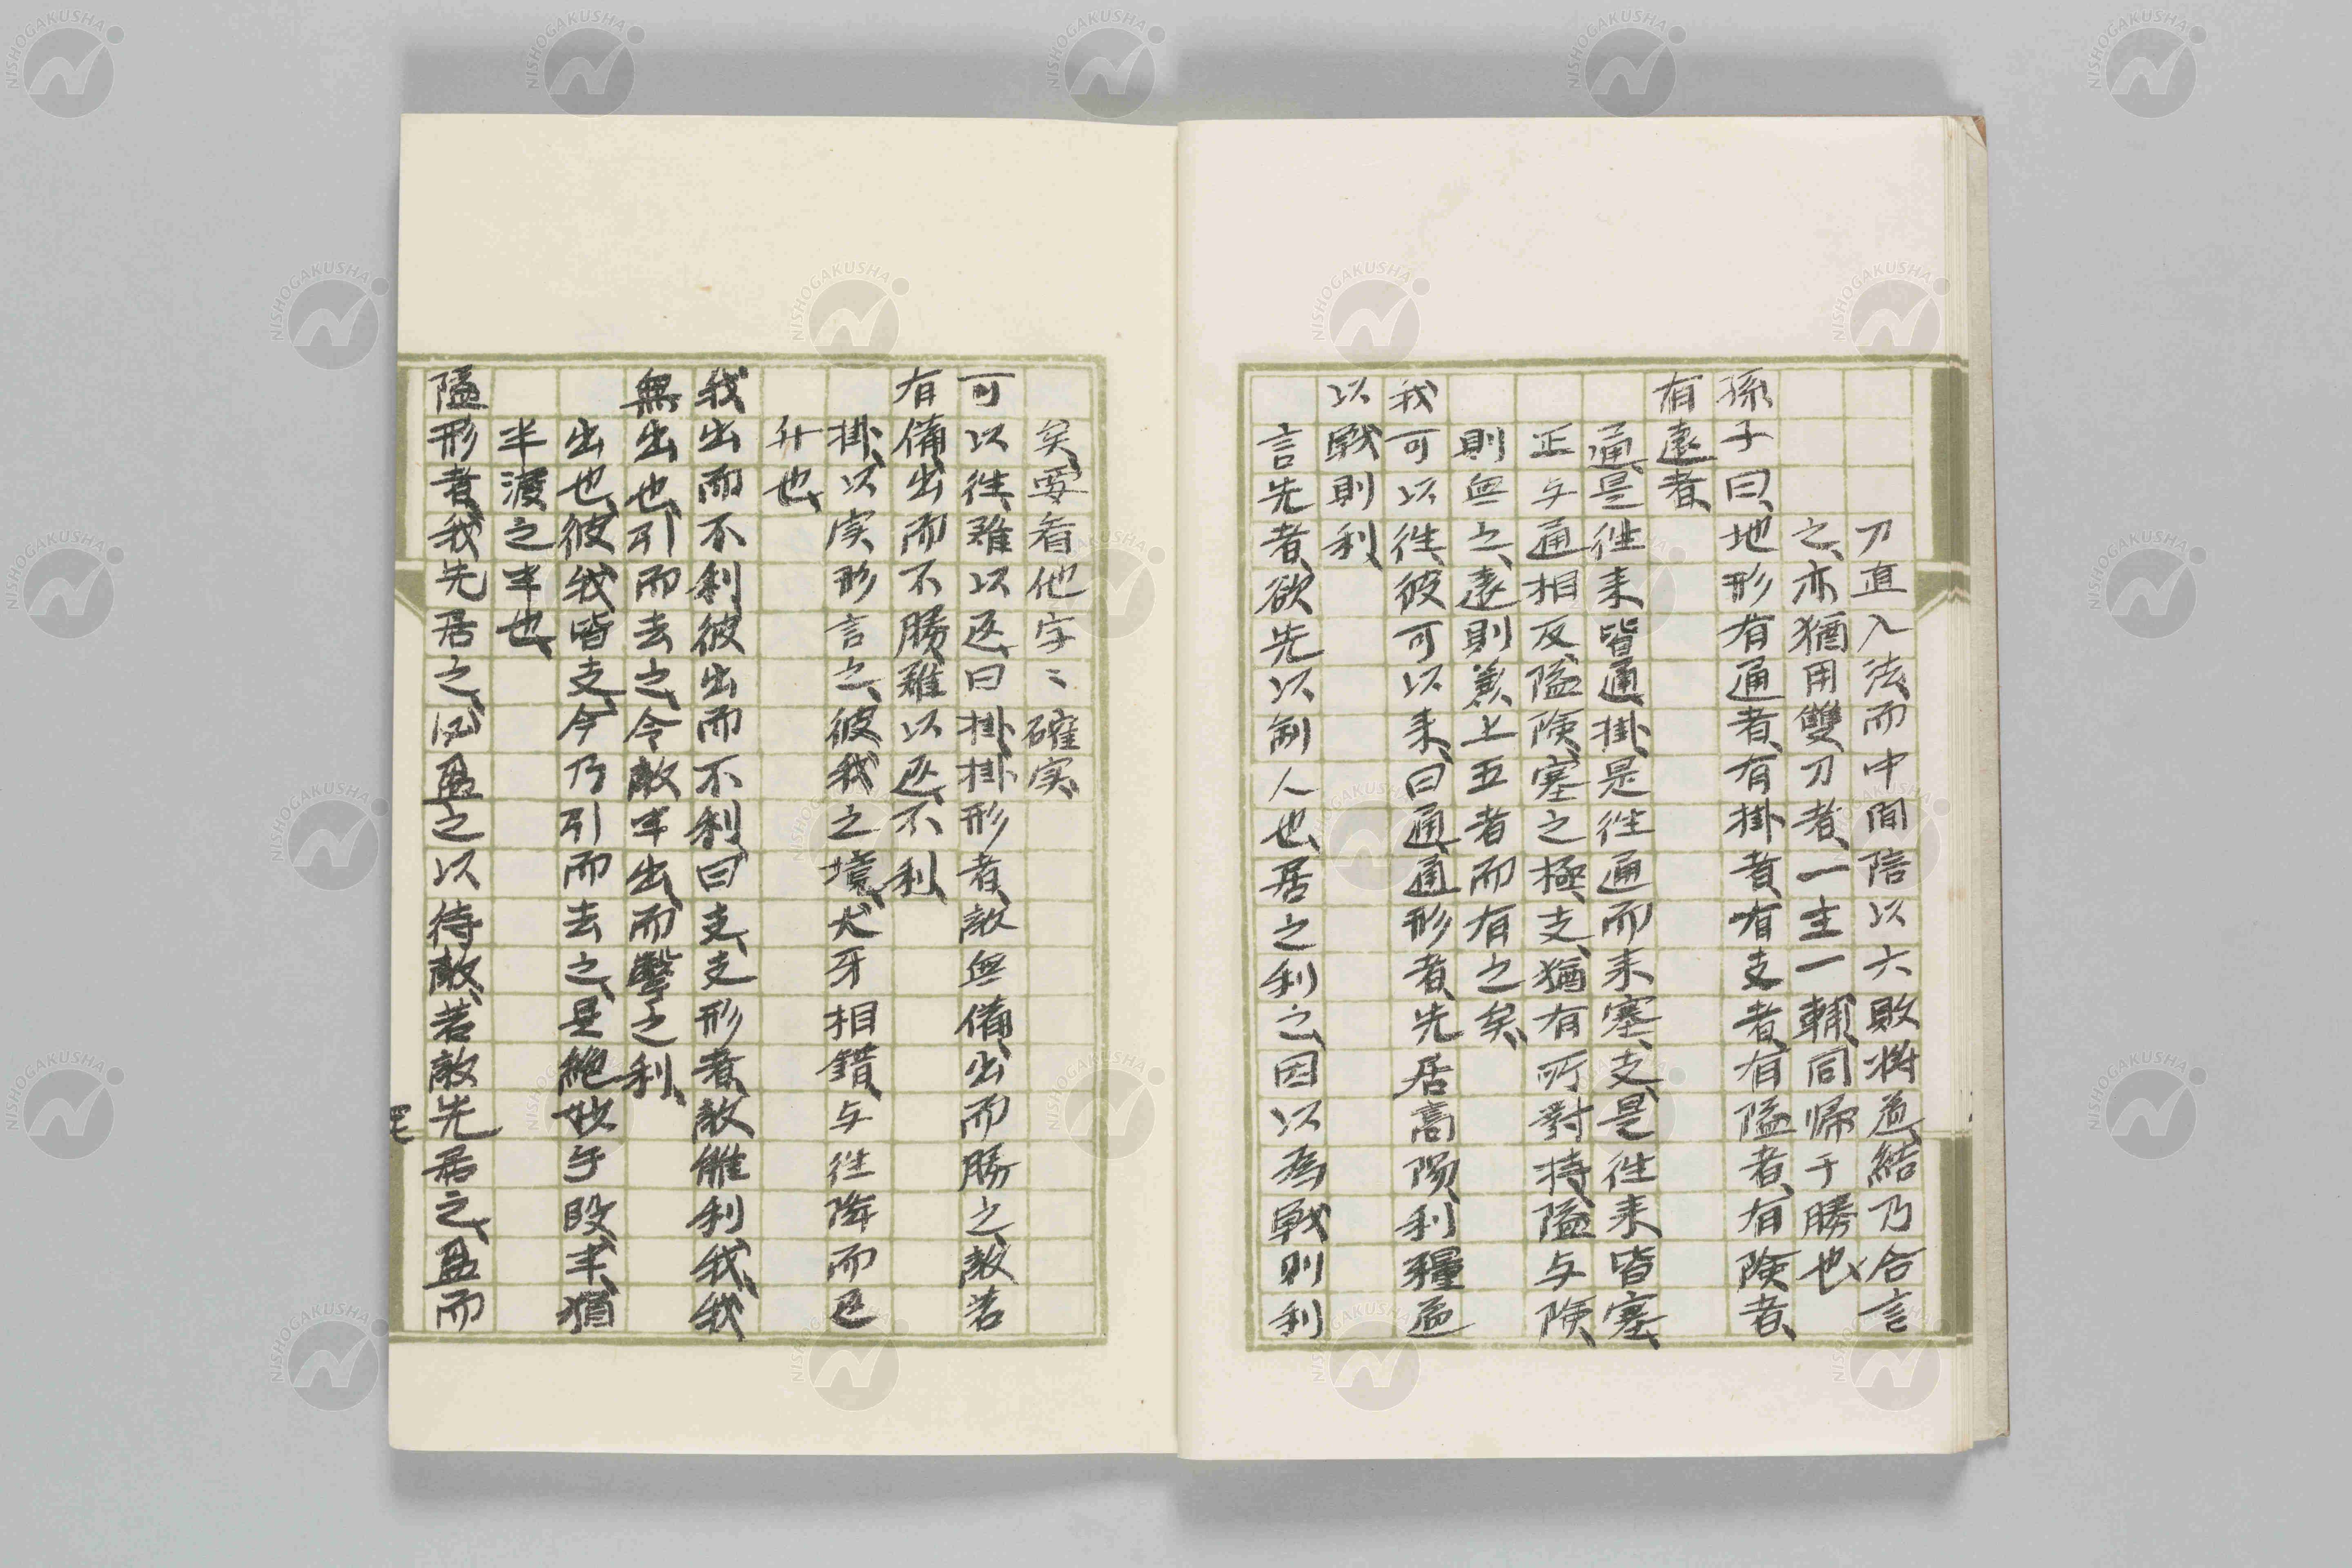 刀直入法而中間陪以六敗将道、結乃合言
之、亦猶用雙刀者、一主一輔、同帰于勝也、
孫子曰、地形有通者、有掛者、有支者、有隘者、有険者、
有遠者、
通、是往来皆通、掛、是往通而来塞、支、是往来皆塞、
正与通相反、隘、険、塞之極、支、猶有所對持、隘与険、
則無之、遠則兼上五者而有之矣、
我可以往、彼可以来、曰通、通形者、先居高陽、利糧道
以戰則利、
言先者、欲先以制人也、居之利之、因以為戰則利
矣、要看他字〻確実、
可以往、難以返、曰掛、掛形者、敵無備、出而勝之、敵若
有備、出而不勝、難以返、不利、
掛、以実形言之、彼我之境、犬牙相錯、与往降而返
升也、
我出而不利、彼出而不利、曰支、支形者、敵雖利我、我
無出也、引而去之、令敵半出、而擊之利、
出也、彼我皆支、今乃引而去之、是絶妙手段、半、猶
半渡之半也、
隘形者、我先居之、必盈之以待敵、若敵先居之、盈而
NISHOGAKUSHA